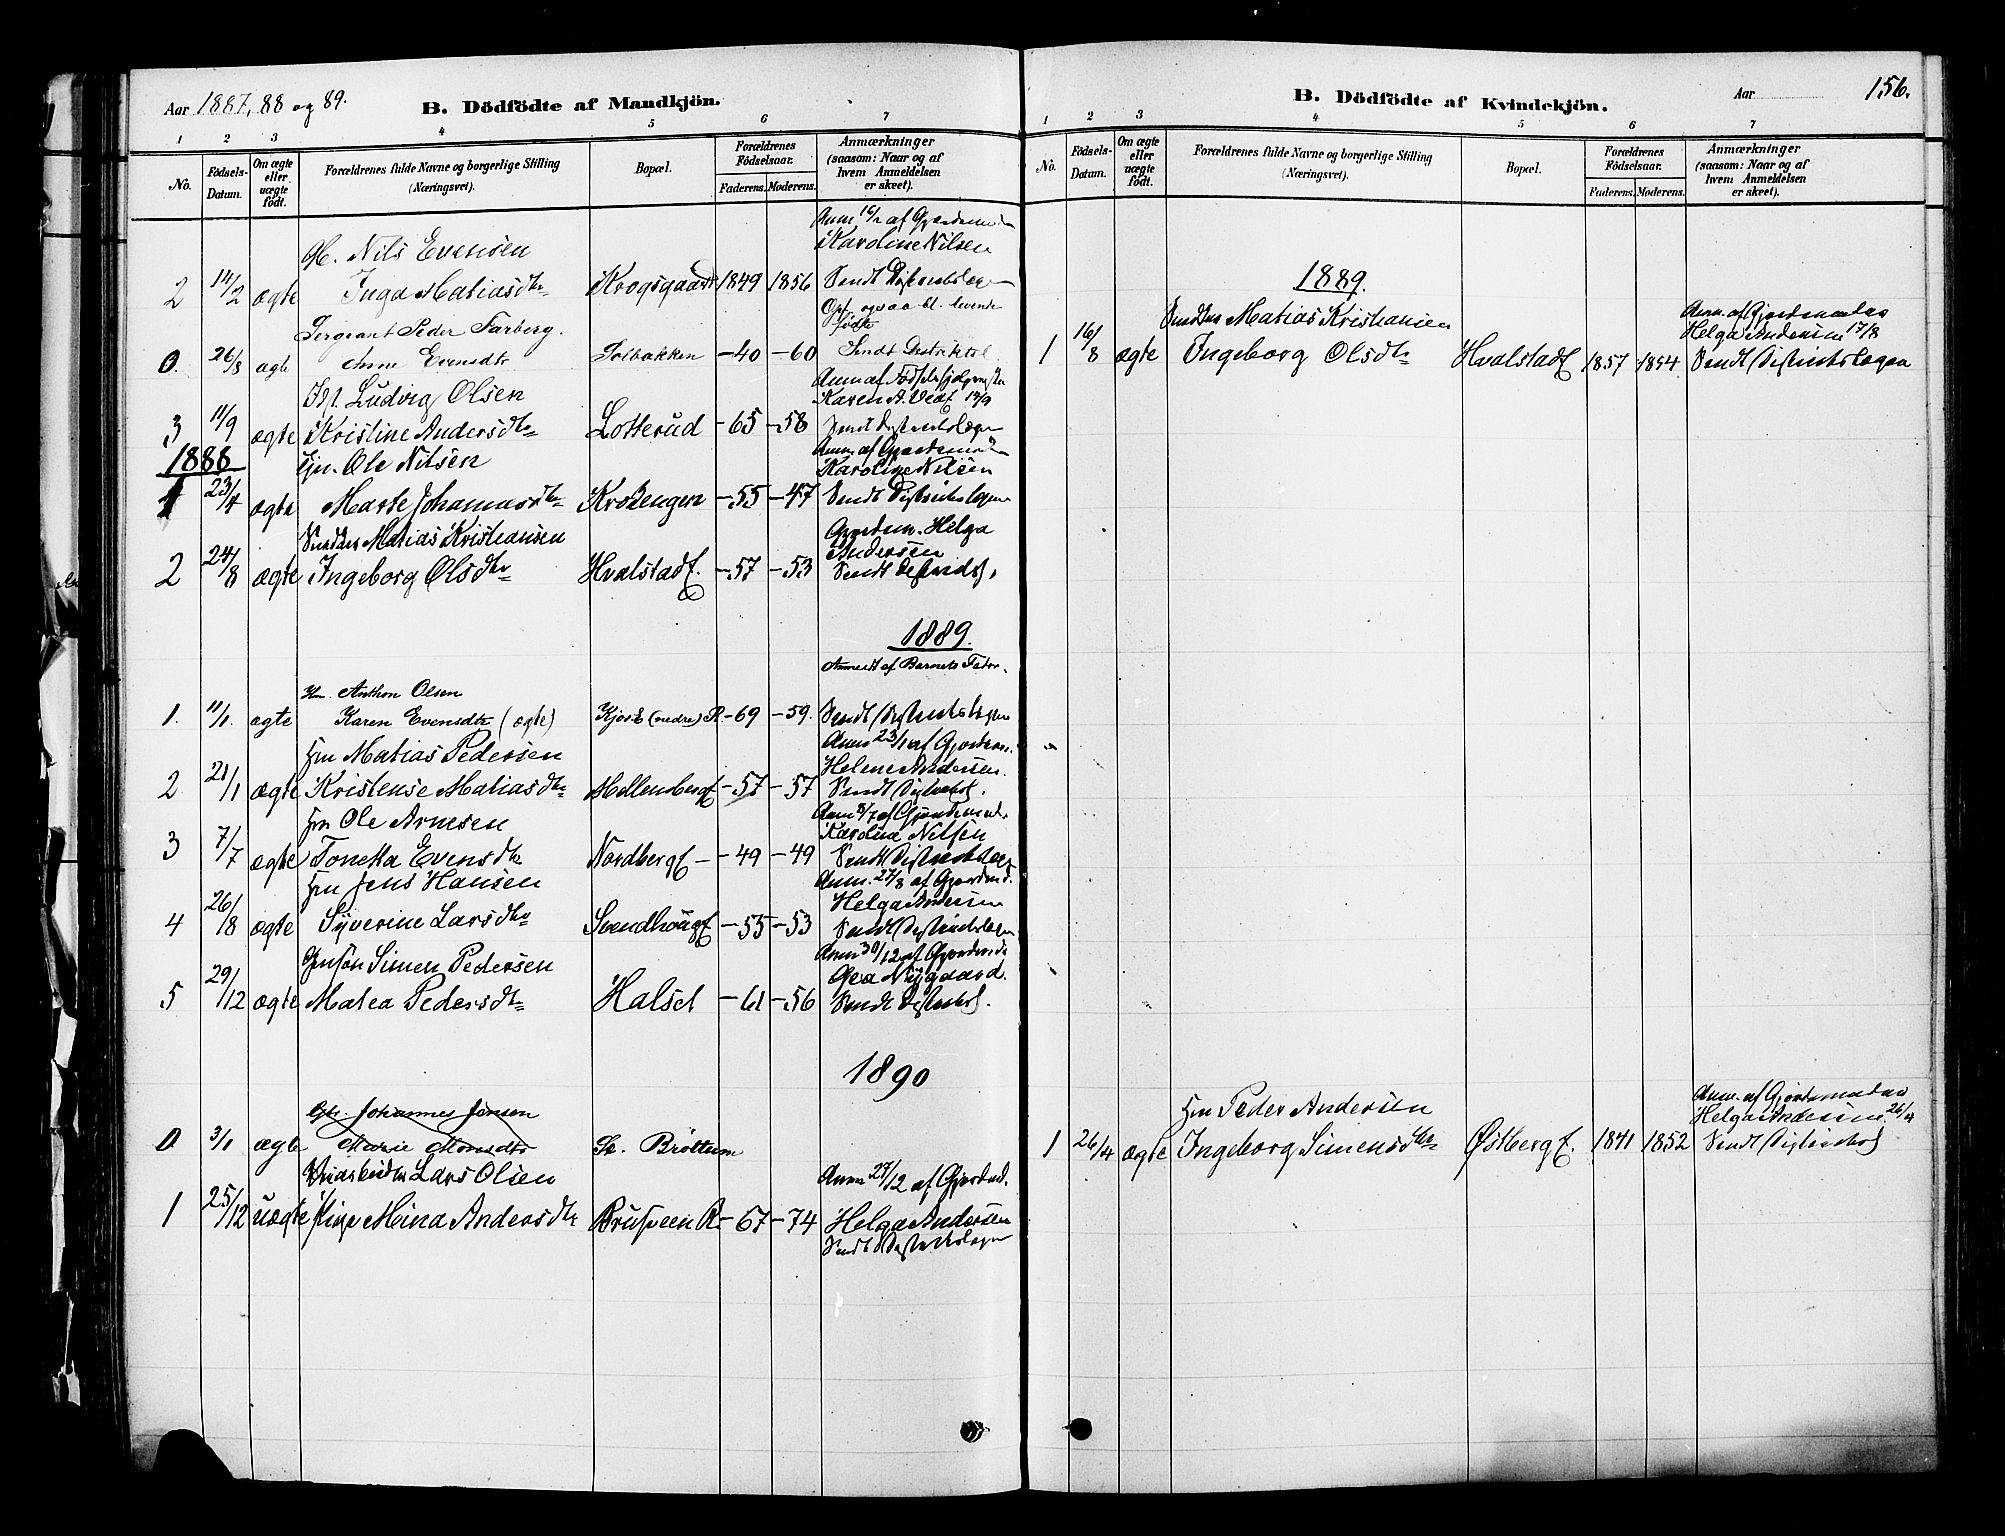 Aar 1887, 88 og 89.
B. Dödfödte af Mandkjön.
1 2 3 4 5 6 7
No.
Födsels-Datum.
Om ægte eller uægte födt.
Forældrenes fulde Navne og borgerlige Stilling (Næringsvei).
Bopæl.
Forældrenes Födselsaar.
Faderens. Moderens.
Anmærkninger (saasom: Naar og af hvem Anmeldelsen er skeet).
Nils Evensen
Karoline Nilsen
2 14/2 ægte Inga Matiasdtr Krogsgaard 1849 1856 Sendt Distriktslægen
Sergeant Peder Farberg.
0. 26/8 ægte Anne Evensdtr Solbakken -40 -60 Sendt Distriktsl.
Ludvig Olsen
3 11/9 ægte Kristine Andersdtr Lotterud -65 -58 Sendt Distriktslægen
1888
Ole Nilsen
Karoline Nilsen
1 23/4 ægte Marte Johannesdtr -55 -47 Sendt Distriktslægen
Matias Kristiansen
Helga Andersen
2 24/8 ægte Ingeborg Olsdtr Hvalstad -57 -53 Sendt Distriktsl.
1889.
Anmeldt af Barnets Fader.
Anthon Olsen
1. 11/1. ægte Karen Evensdtr (ægte) -69 -59. Sendt Distriktslægen
Hm Matias Pedersen
Anm 23/1 af Gjordem.
Helene Andersen.
2 21/1 ægte Kristense Matiasdtr -57 -57 Sendt Distriktsl.
Hm Ole Arnesen
Karoline Nilsen
3 7/7 ægte Tonetta Evensdtr Nordberg -49 -49 Sendt Distriktslæg
Hm Jens Hansen
Anm. 27/8 af Gjordmd.
Helga Andersen
4 26/8 ægte Syverine Larsdtr Svendhaug -55 -53 Sendt Distriktslægen
Simen Pedersen
Anm 30/12 af Gjordemd
Nygaard.
5 29/12 ægte Matea Pedersdtr Halset -61 -56 Sendt Distriktsl.
1890
Johannes Jensen
0 3/1 ægte Marie Monsdtr Brøttum
Lars Olsen
Anm 27/12 af Gjordmd.
1 25/12 uægte Pige Mina Andersdtr Brusveen -67 -74 Helga Andersen
Sendt Distriktslægen
B. Dödfödte af Kvindekjön.
Aar
156.
1 2 3 4 5 6 7
No.
Födsels-Datum.
Om ægte eller uægte födt.
Forældrenes fulde Navne og borgerlige Stilling (Næringsvei).
Bopæl.
Forældrenes Födselsaar.
Faderens. Moderens.
Anmærkninger (saasom: Naar og af hvem Anmeldelsen er skeet).
1889.
Matias Kristiansen
Anm. af Gjordemoder
Helga Andersen 17/8
1 16/8 ægte Ingeborg Olsdtr Hvalstad 1857 1854 Sendt Distriktslægen
Hm Peder Andersen
Anm. af Gjordemoder
Helga Andersen 26/4
1 26/4 ægte Ingeborg Simensdtr Østberg 1841 1852 Sendt Distriktsl